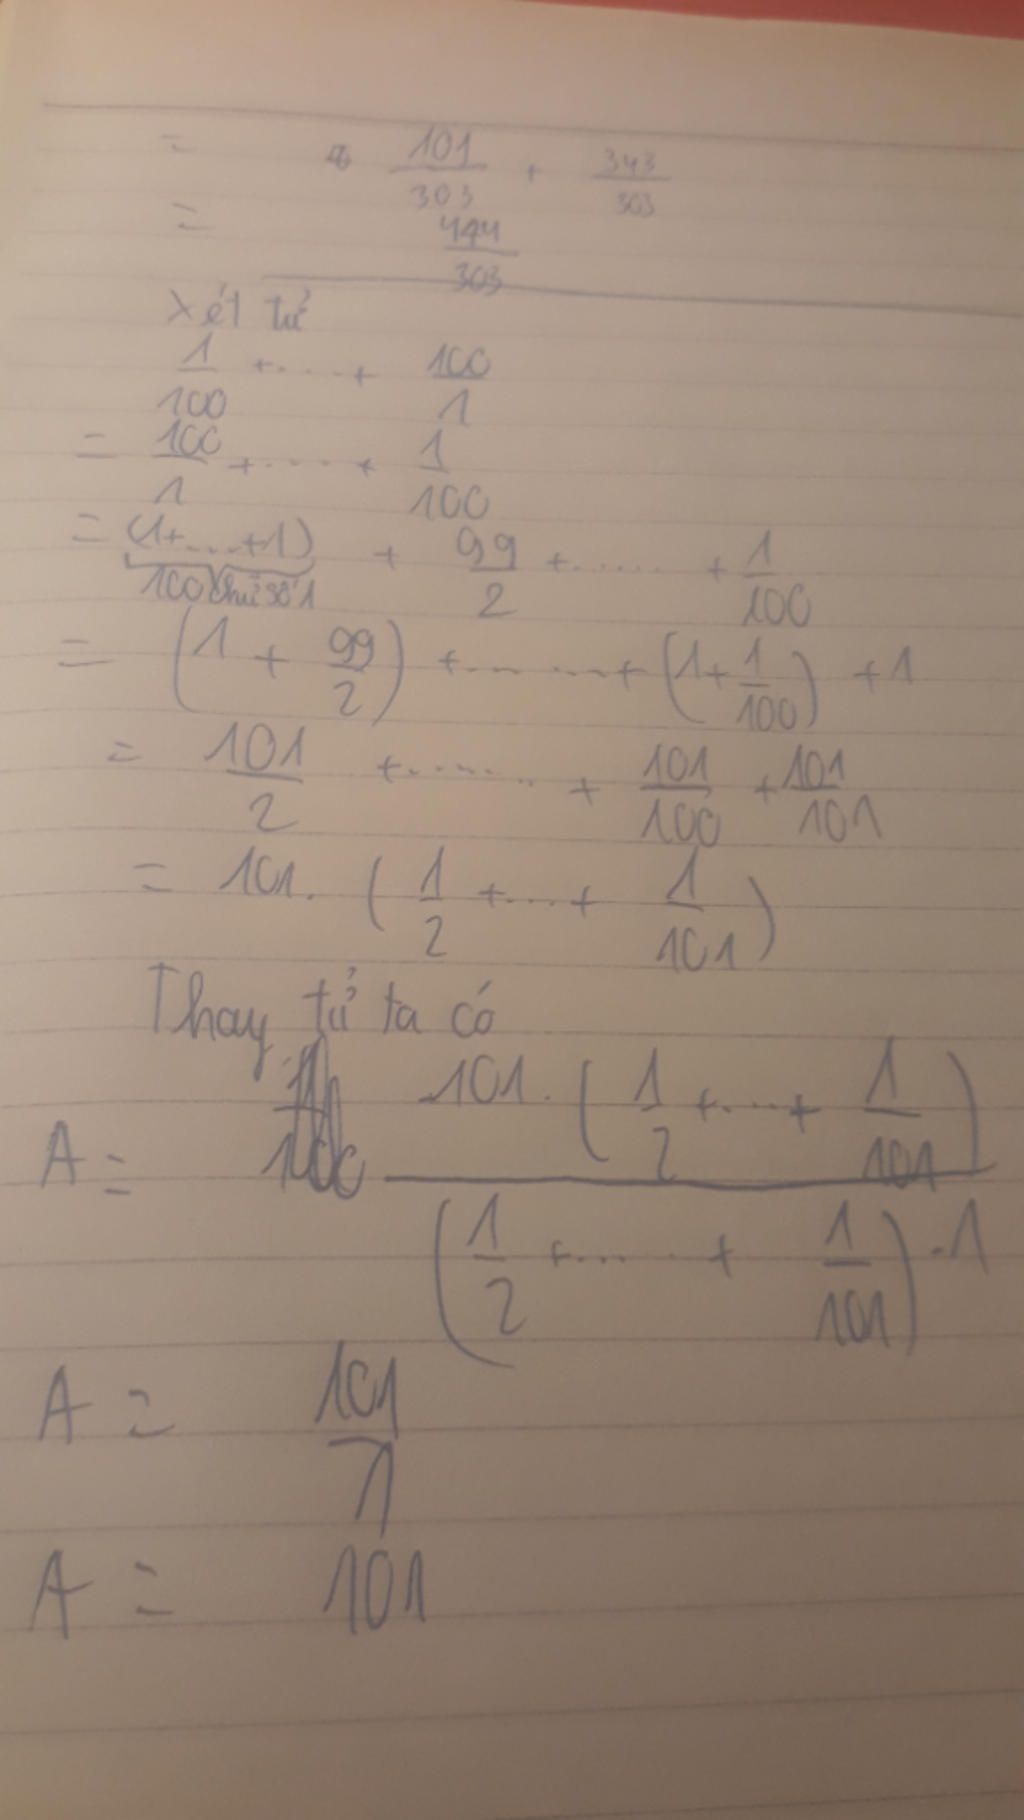 = 101/303 + 343/303
= 444/303
Xét tử
1/100 + .... + 100/1
= 100/1 + .... + 1/100
= (1+....+1) + 99/2 + ...... + 1/100
100 chữ số 1
= (1 + 99/2) + ....... + (1 + 1/100) + 1
= 101/2 + ....... + 101/100 + 101/101
= 101. (1/2 + .... + 1/101)
Thay tử ta có
A = 101. (1/2 + .... + 1/101) / (1/2 + ..... + 1/101) . 1
A = 101/1
A = 101